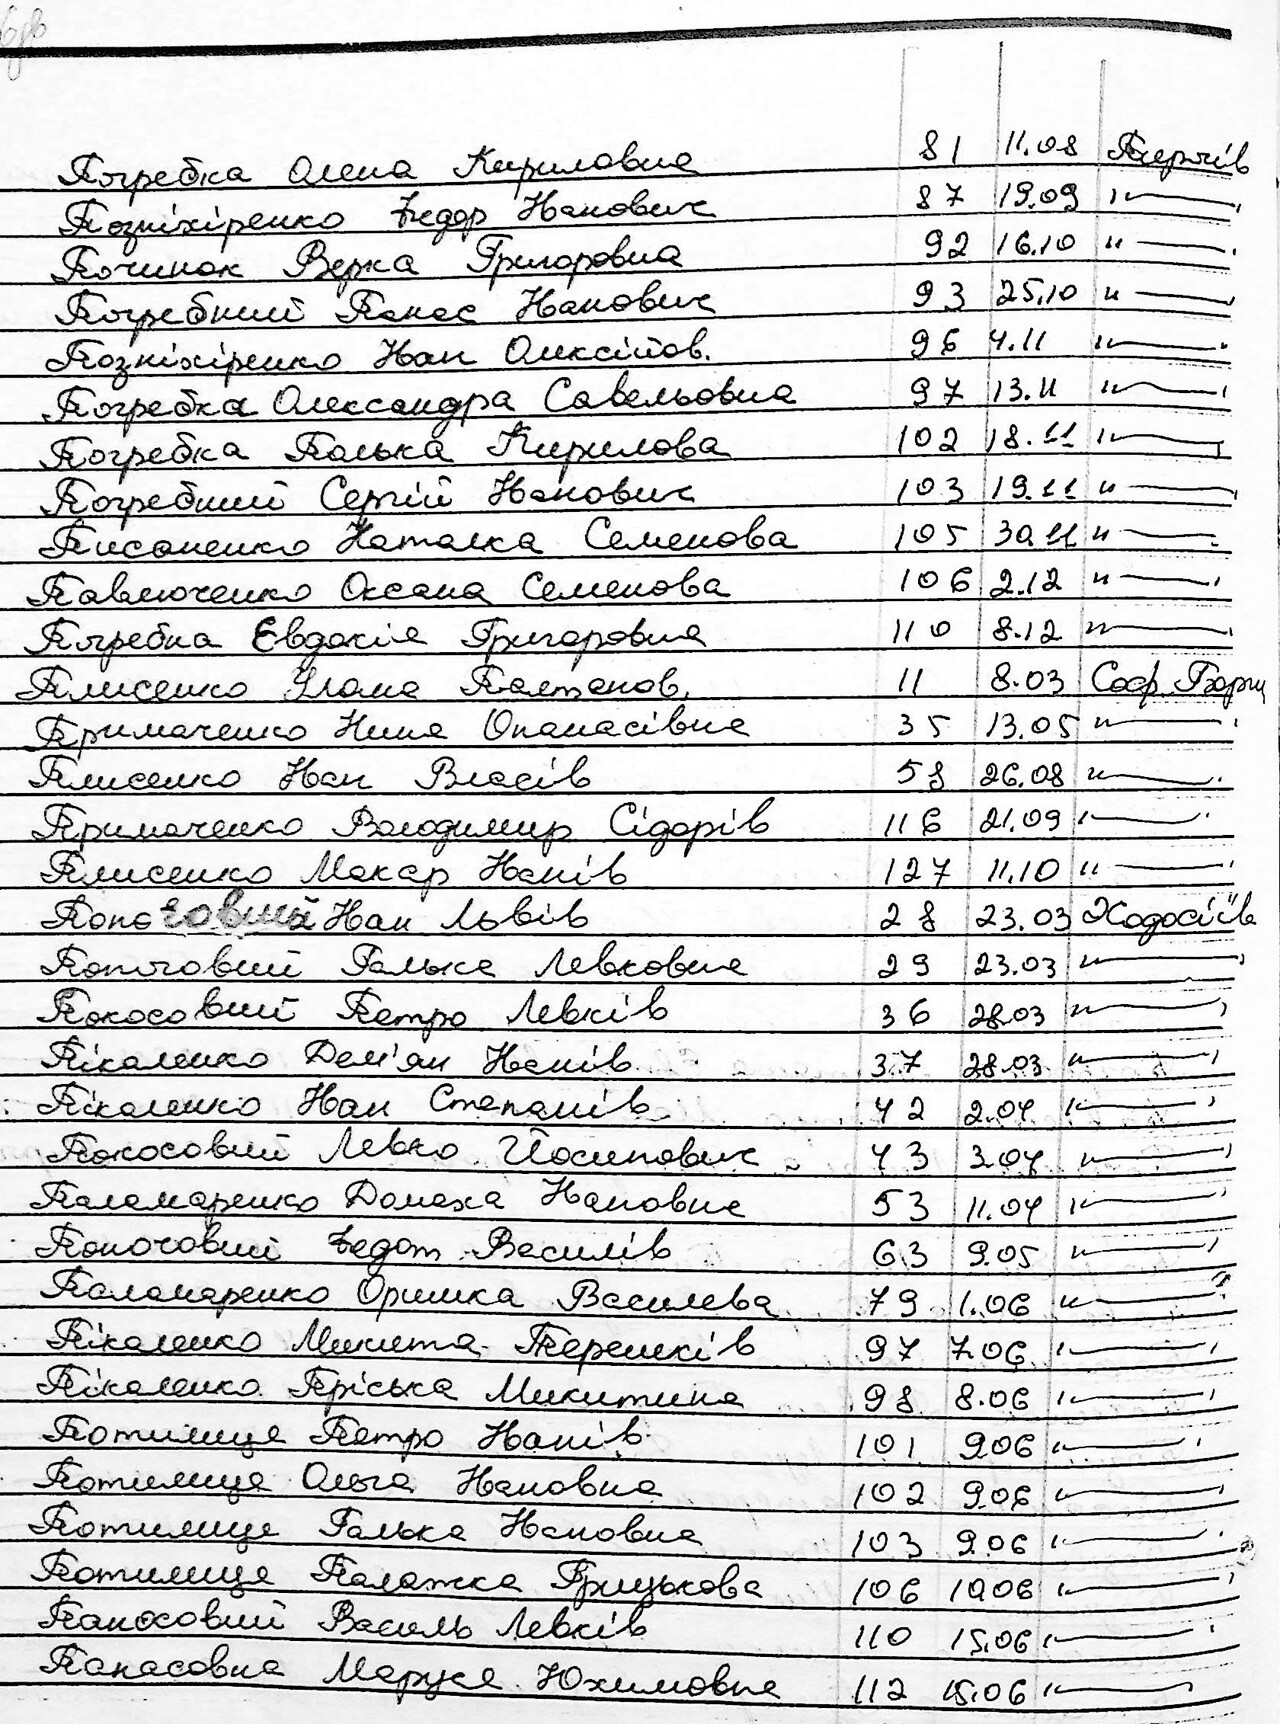 Погребка Олена Кириловна 81 11.08 Пирогів
Позніхіренко Федор Іванович 87 19.09 "
Починок Верка Григоровна 92 16.10 "
Погребний Панас Іванович 93 25.10 "
Позніхіренко Іван Олексійов. 96 4.11 "
Погребка Олександра Савельовна 97 13.11 "
Погребка Полька Кирилова 102 18.11 "
Погребний Сергій Іванович 103 19.11 "
Писаненко Наталка Семенова 105 30.11 "
Павлюченко Оксана Семенова 106 2.12 "
Погребна Евдокія Григоровна 110 8.12 "
Плисенко Улома 11 8.03 Соф. Борщ
Примаченко Нина Опанасівна 35 13.05 "
Плисенко Іван Власів 58 26.08 "
Примаченко Володимир Сідорів 116 21.09 "
Плисенко Макар Іванів 127 11.10 "
Попоговий Іван Львів 28 23.03 Ходосіїв
Галька Левковна 29 23.03 "
Покосовий Петро Левків 36 28.03 "
Пікаленко Дем'ян Іванів 37 28.03 "
Пікаленко Іван Степанів 42 2.04 "
Покосовий Левко Йосипович 43 3.04 "
Паламаренко Домаха Івановна 53 11.04 "
Федот Василів 63 9.05 "
Паламаренко Оришка Василева 79 1.06 "
Пікаленко Микита Терешків 97 7.06 "
Пікаленко Пріська Микитина 98 8.06 "
Потилице Петро Іванів 101 9.06 "
Потилице Ольга Івановна 102 9.06 "
Потилице Галька Івановна 103 9.06 "
Потилице Палажка Грицькова 106 10.06 "
Панасовий Василь Левків 110 15.06 "
Панасовна Маруся Юхимовна 112 15.06 "